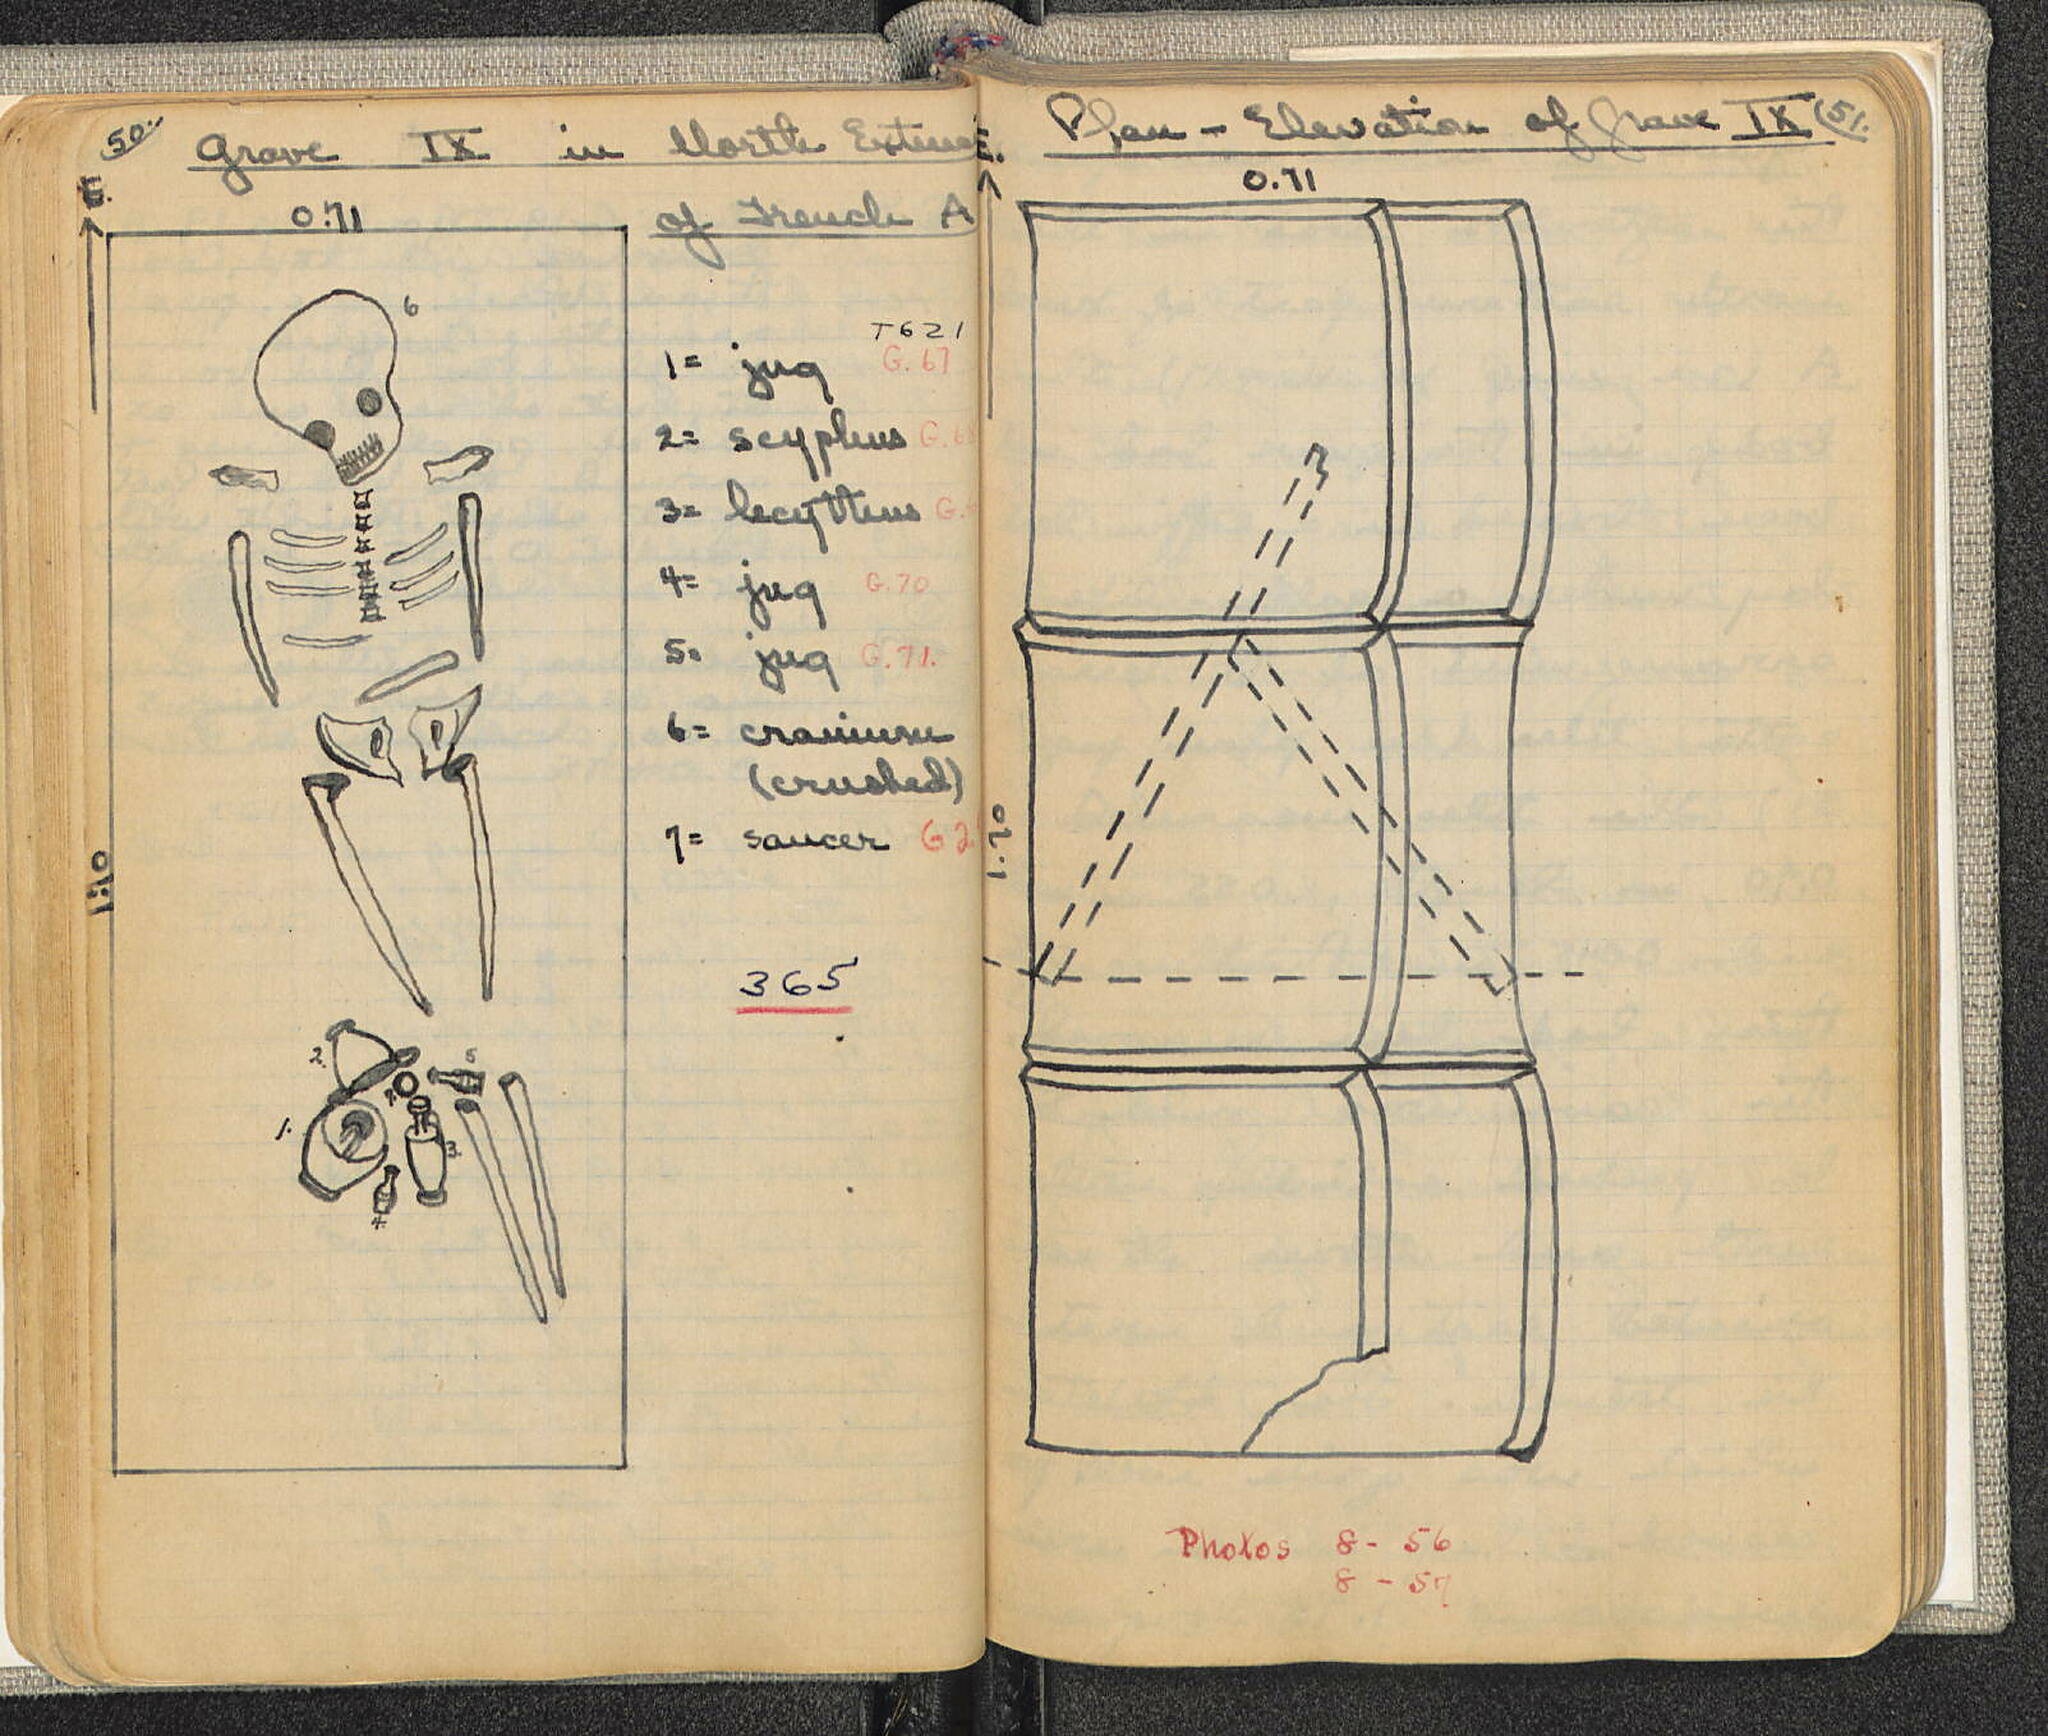 50.
Grave IX in North Extens
of Trench A
E.
0.71
6
T621
1= jug G.67
2= scyphus G.68
3= lecythus G.
4= jug G.70
5= jug G.71.
6= cranium
(crushed)
7= saucer G 2
1.70
365
2.
5
7.
1.
3.
4.
Plan - Elevation of Grave IX (51.
E.
0.71
1.70
Photos 8 - 56
8 - 57